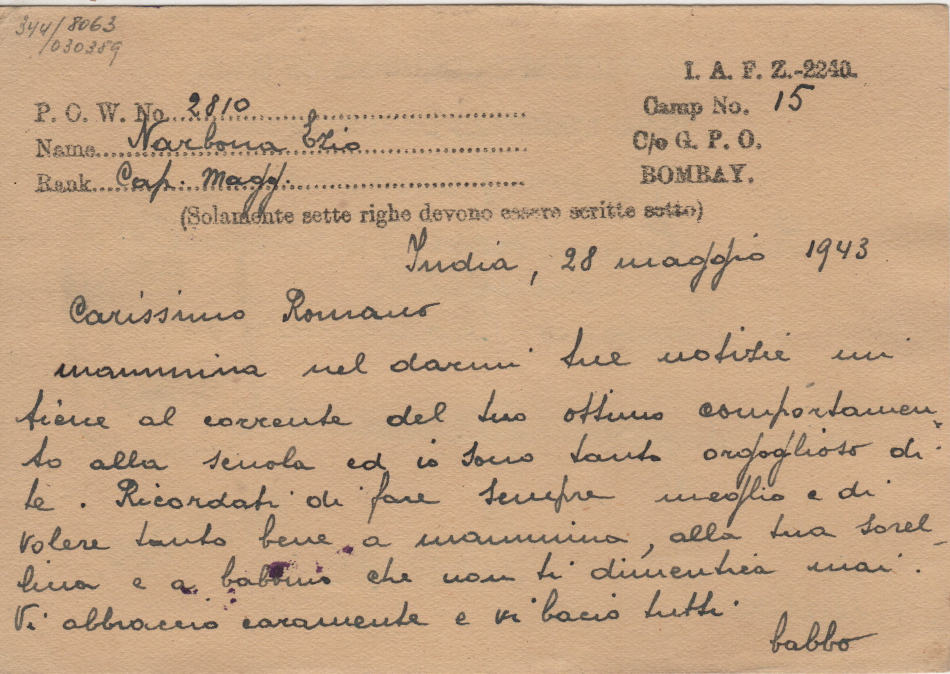 344/8063
/030389
I. A. F. Z.-2240.
P. O. W. No. 2810
Camp No. 15
Name Narbona Ezio
C/o G. P. O.
Rank Cap. Magg.
BOMBAY.
(Solamente sette righe devono essere scritte sotto)
India, 28 maggio 1943
Carissimo Romano
mammina nel darmi tue notizie mi
tiene al corrente del tuo ottimo comportamen-
to alla scuola ed io sono tanto orgoglioso di
te. Ricordati di fare sempre meglio e di
volere tanto bene a mammina, alla tua sorel-
lina e a babbino che non ti dimentica mai.
Vi abbraccio caramente e vi bacio tutti
babbo